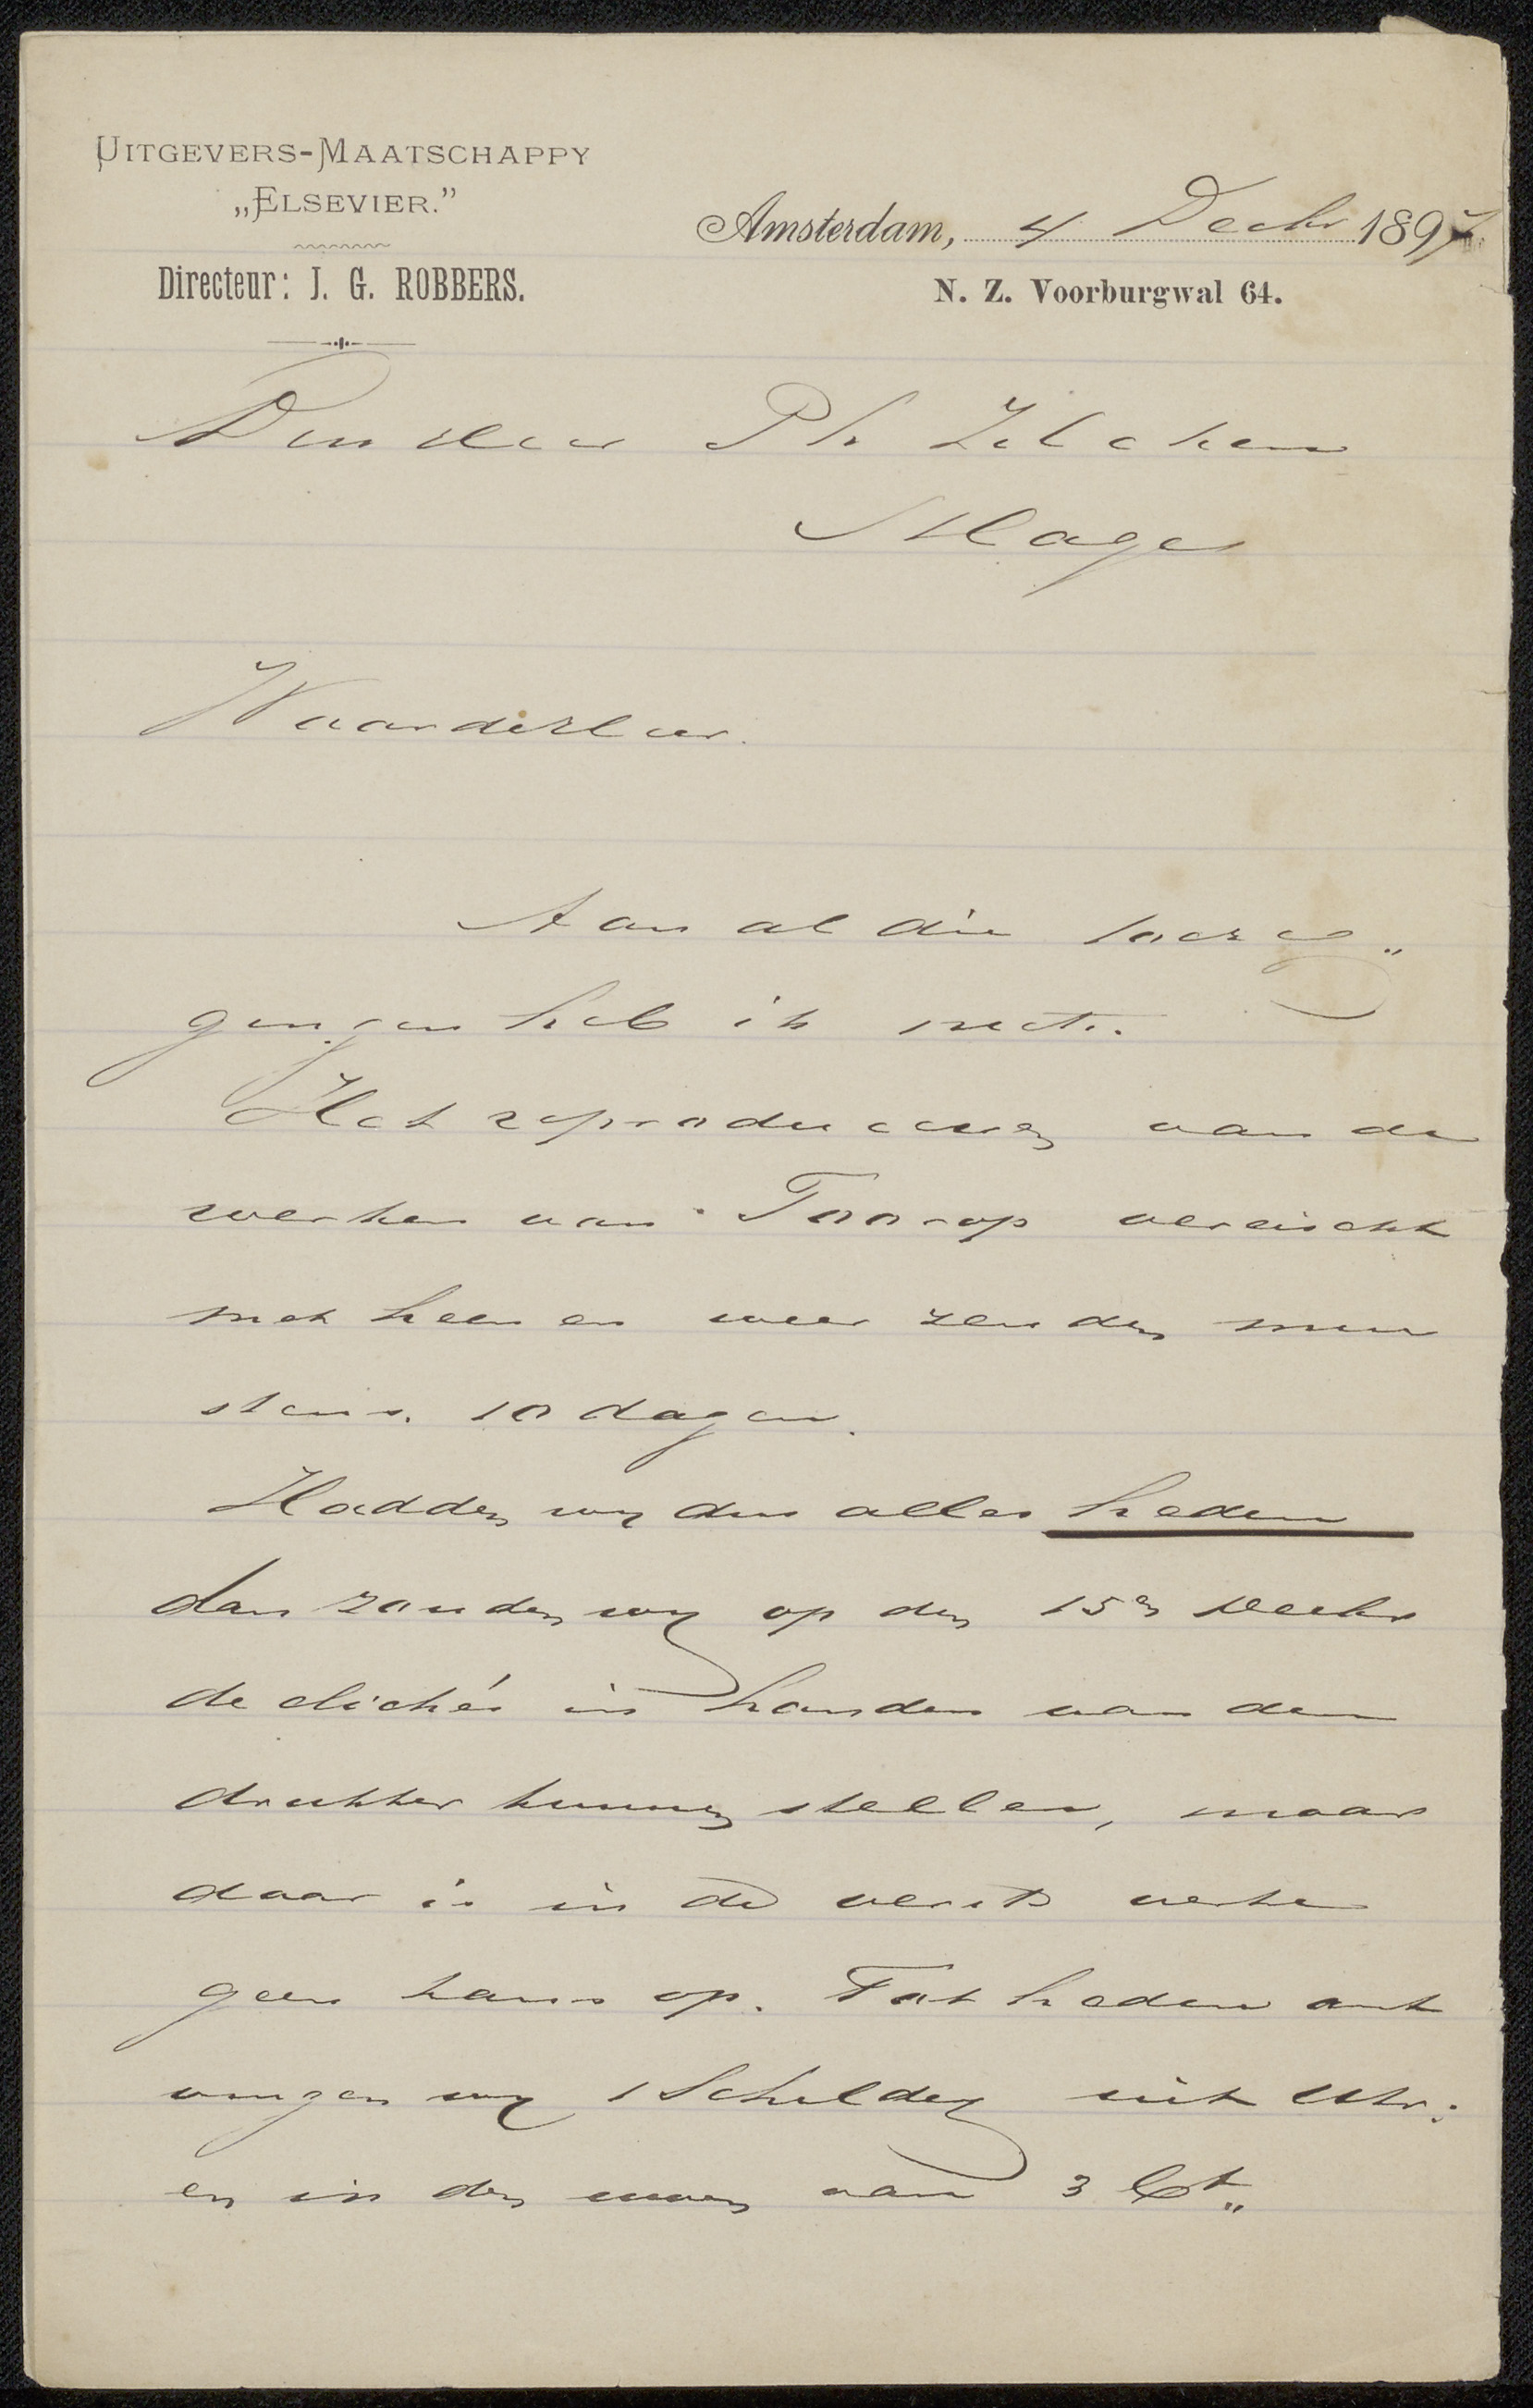 UITGEVERS-MAATSCHAPPY
„ELSEVIER.”
Directeur: J. G. ROBBERS.
Amsterdam, 4 Decbr 1897
N. Z. Voorburgwal 64.
Den Heer Ph Zilcken
S Hage
WaardeHeer.
Aan al die toezeg„
gingen heb ik niets.
Het reproduceeren van de
werken van Toorop vereischt
met heen en weer zenden min
stens 10 dagen.
Hadden wy dus alles heden
dan zouden wy op den 15en Decbr
de clichés in handen van den
drukker kunnen stellen, maar
daar is in de verste verte
geen kans op. Tot heden ont
vingen wy 1 Schildery uit Utr:
en in den uwen van 3 Ct„